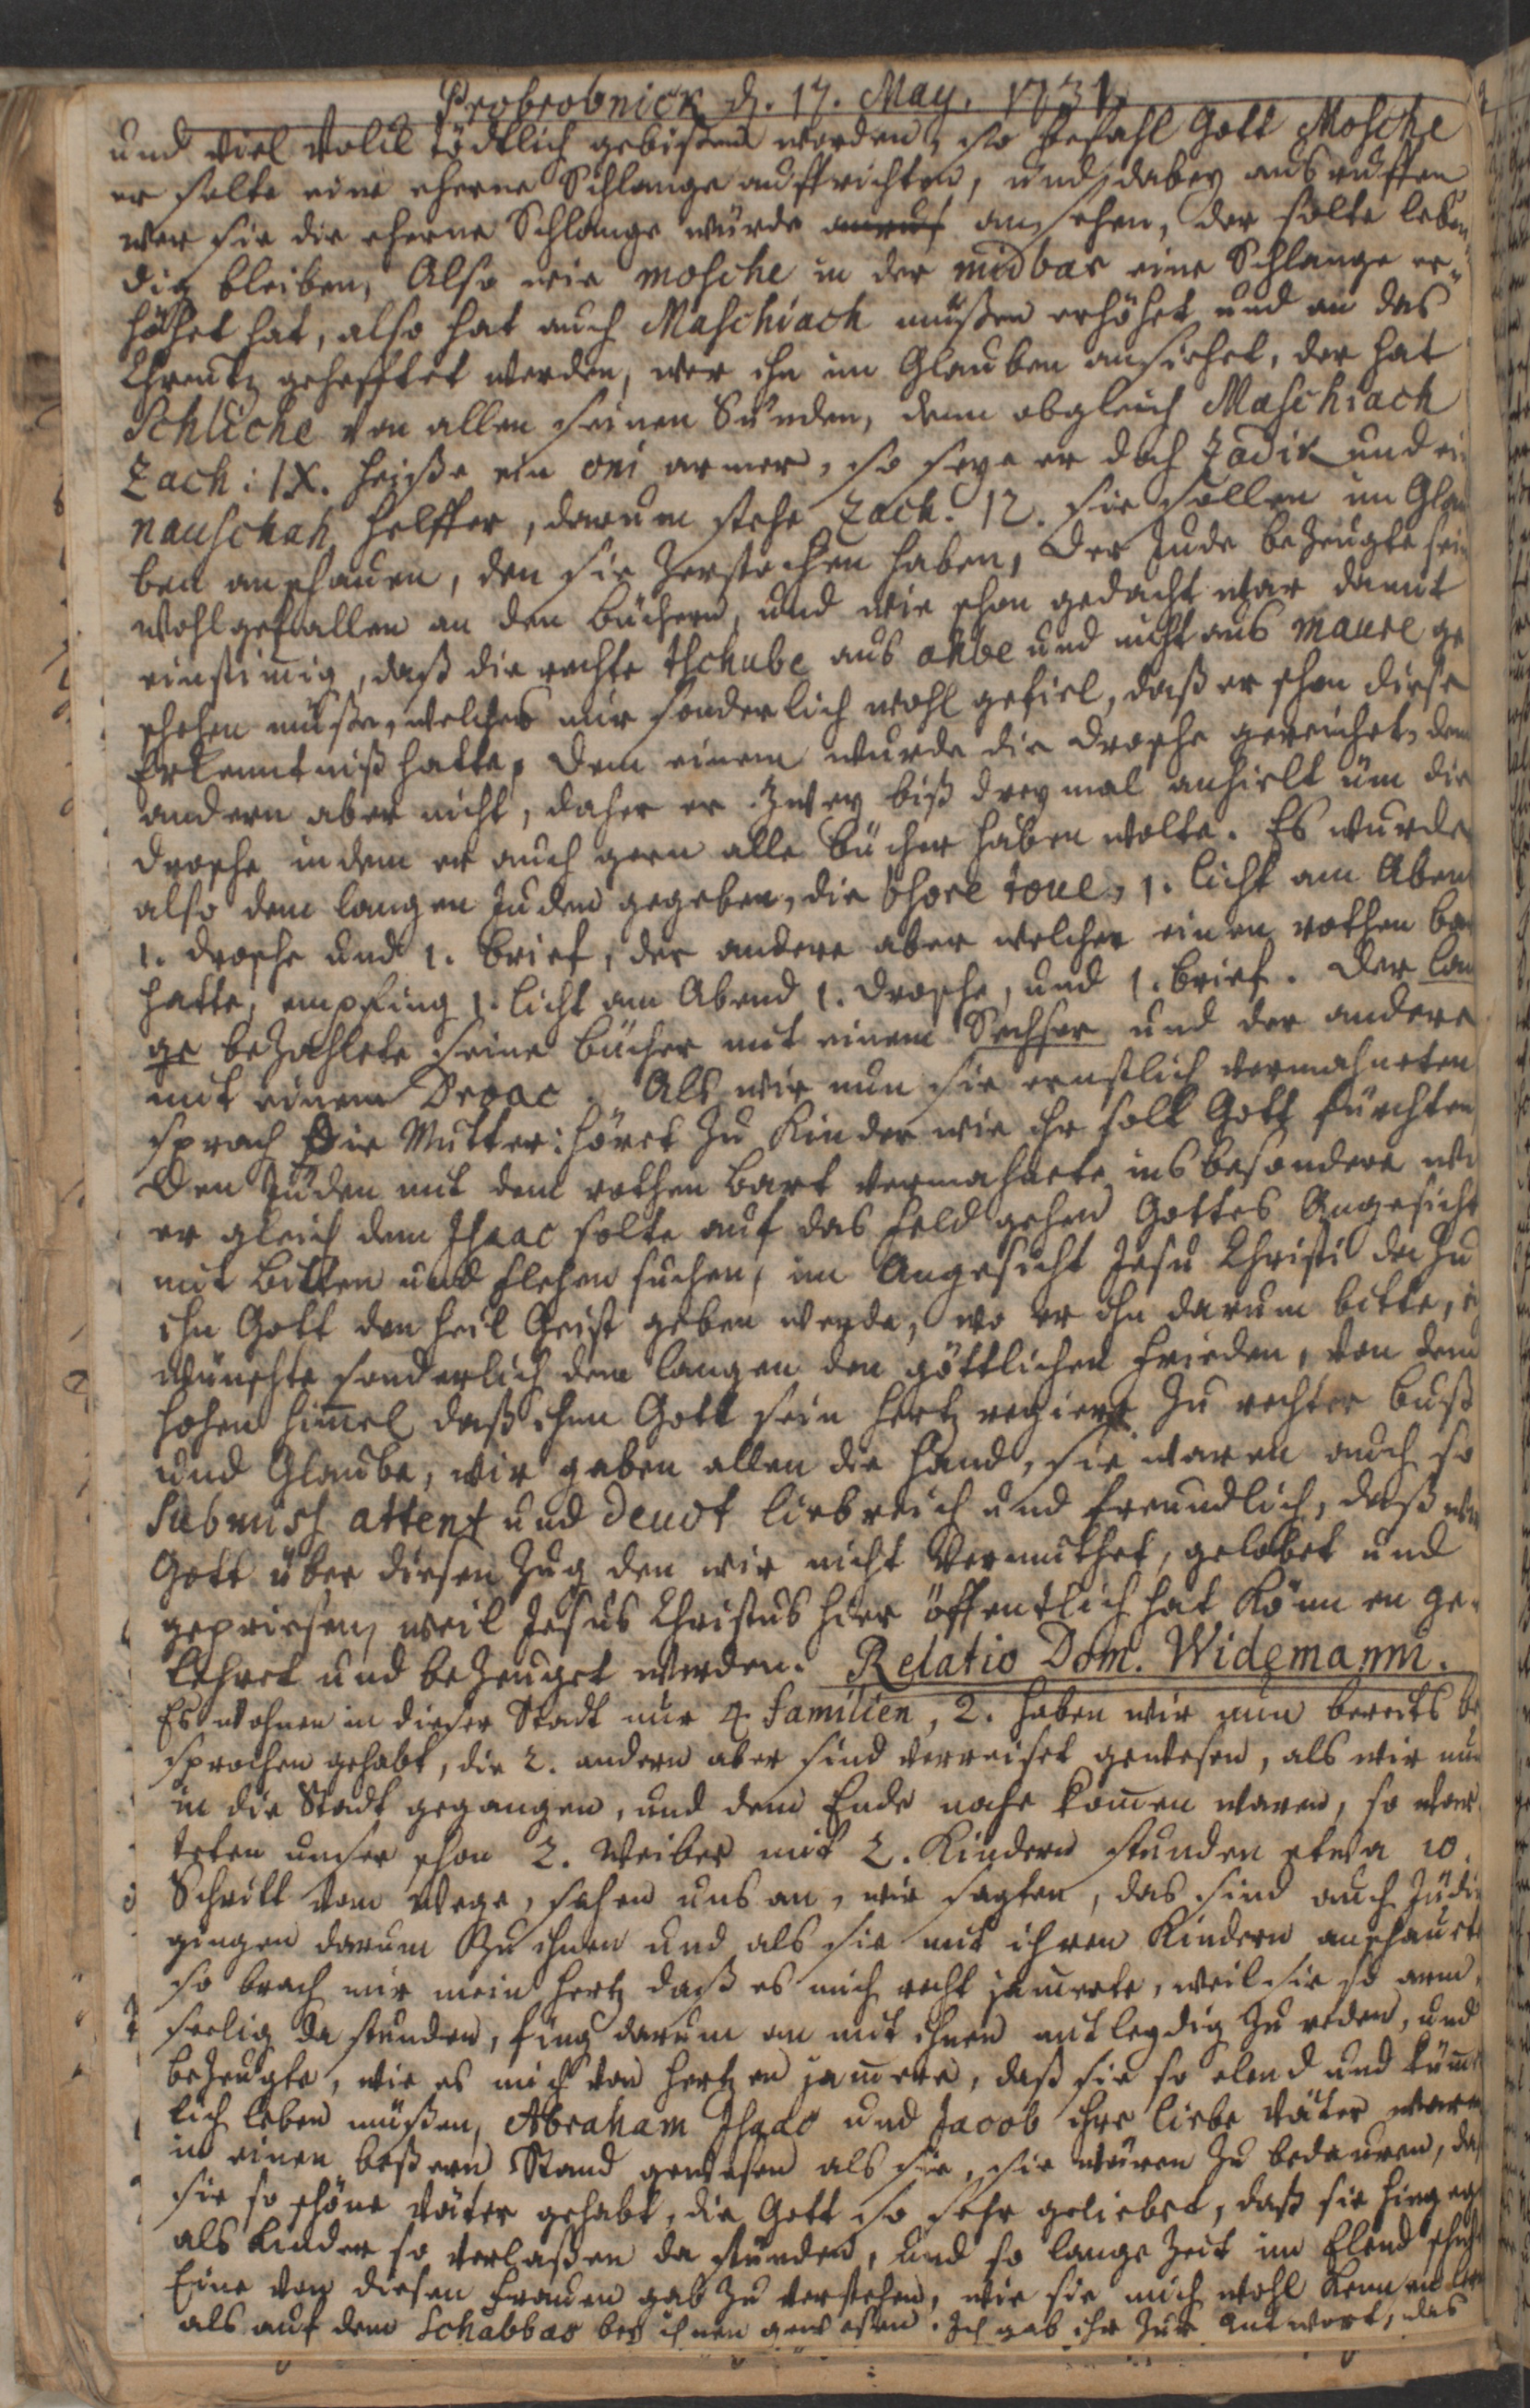 Probrobnick d. 17. May. 1731.
und viel Volck tödtlich gebißen worden, so befahl Gott Mosche
er solte eine eherne Schlange auffrichten, und dabey ausruffen
wer sie die eherne Schlange würde ansehen, der solte leben„
dig bleiben, Also wie mosche in der midbar eine Schlange er„
höhet hat, also hat auch Maschiach müßen erhöhet und an das
Chreutz gehefftet werden, wer ihn im Glauben ansiehet, der hat
Schliche von allen seinen Sünden, denn obgleich Maschiach
Zach: IX. heiße ein oni armer, so seye er doch Zadik und ein
nauschah helffer, darum stehe Zach. 12. sie sollen im Glau
ben anschauen, den sie zerstochen haben, Der Jude bezeugte sein
wohlgefallen an den büchern, und wie schon gedacht war damit
einstim̄ig, daß die rechte tschube aus ahbe und nicht aus maure ge
schehen müße, welches mir sonderlich wohl gefiel, daß er schon diese
Erkenntniß hatte, dem einem wurde die drosche gereichet, dem
andern aber nicht, daher er zwey biß dreymal anhielt um die
drosche indem er auch gern alle bücher haben wolte. Es wurde
also dem langen Juden gegeben, die thore toue, 1. licht am Abend
1. drosche und 1. brief, der andere aber welcher einen rothen bar
hatte, empfing 1. licht am Abend 1. drosche, und 1. brief. Der lan
ge bezahlete seine bücher mit einem Sechser und der andere
mit einem Dreyer. Als wir nun sie ernstlich vermahneten
sprach Die Mutter: höret zu Kinder wie ihr solt Gott fürchten
Den Juden mit dem rothen bart vermahnete insbesondere wie
er gleich dem Isaac solte auf das feld gehen Gottes Angesicht
mit bitten und flehen suchen, im Angesicht Jesu Christi dazu
ihn Gott den heil Geist geben werde, wo er ihn darum bitte,
wünschte sonderlich dem langen den göttlichen frieden, von dem
hohen him̄el daß ihm Gott sein hertz regiere zu rechter buß
und Glaube, wir gaben allen die hand, sie waren auch so
submiss attent und devot liebreich und freundlich, daß wir
Gott über diesen Zug den wir nicht vermuthet, gelobet und
gepriesen, weil Jesus Christus hier öffentlich hat können ge„
lehret und bezeuget werden. Relatio Dom. Widemanni.
Es wohnen in dieser Stadt nur 4. familien, 2. haben wir nun bereits be
sprochen gehabt, die 2. andern aber sind verreiset gewesen, als wir nun
in die Stadt gegangen, und dem Ende nahe kom̄en waren, so war
teten unser schon 2. Weiber mit 2. Kindern stunden etwa 10.
Schritt vom Wege, sahen uns an, wir sagten, das sind auch Jüdin
gingen darum zu ihnen und als sie mit ihren Kindern anschaute
so brach mir mein hertz daß es mich recht jam̄erte, weil sie so arm„
seelig da stunden, fing darum an mit ihnen mitleydig zu reden, und
bezeugte, wie es mich von hertzen jam̄ere, daß sie so elend und küm̄er
lich leben müßen, Abraham Isaac und Jacob ihre liebe väter waren
in einen beßern Stand gewesen als sie, sie wären zu bedauren, daß
sie so schöne väter gehabt, die Gott so sehr geliebet, daß sie hingegen
als kinder so verlaßen da stünden, und so lange Zeit im Elend
Eine von diesen frauen gab zu verstehen, wie sie mich wohl kennen lern
als auf dem Schabbas bey ihnen gewesen. Ich gab ihr zur Antwort, das